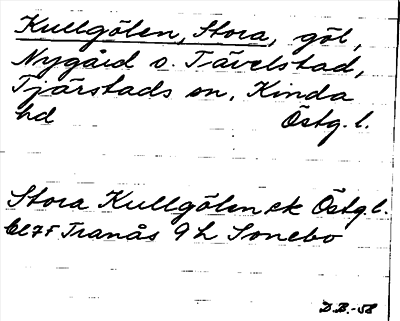 Kullgölen, Stora, göl,
Nygård o. Tävelstad,
Tjärstads sn, Kinda
hd Östg. l.
Stora Kullgölen ek Östg. l.
7F Tranås 9 h Sonebo
D.B.-58